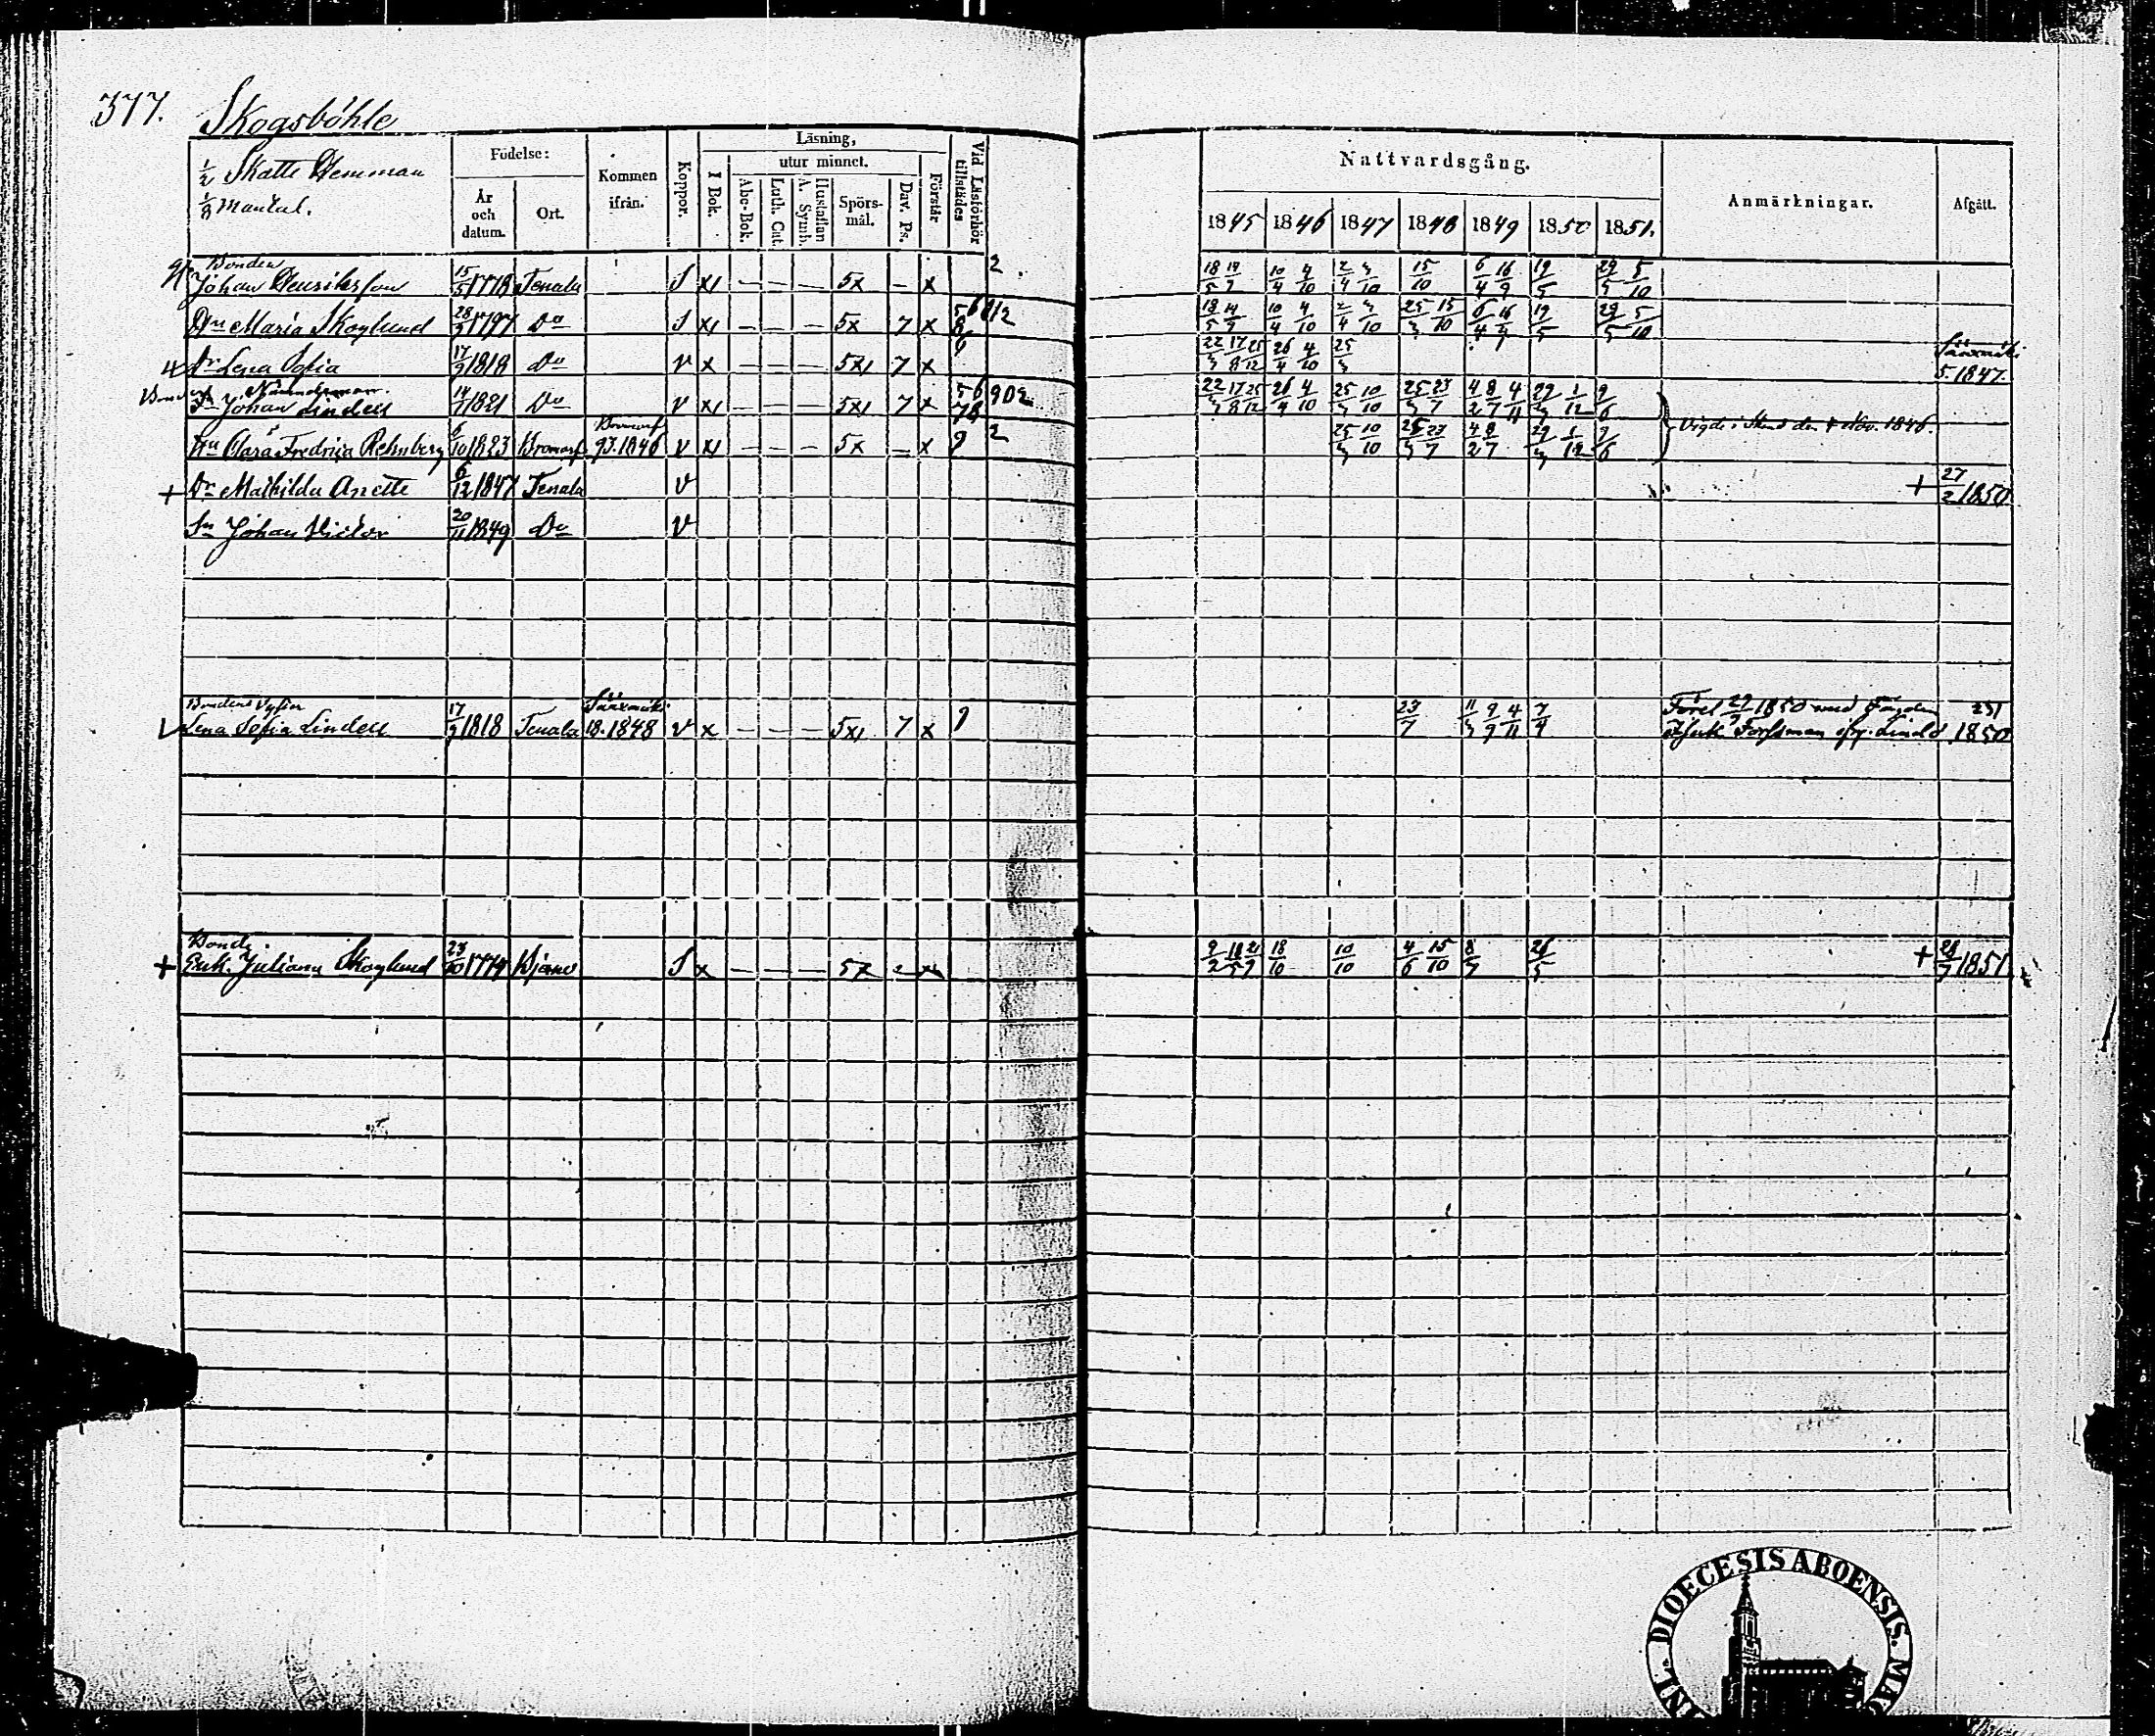 377. Skogsböhle
1/2 Skatte Hemman
1/8 Mantal.
Födelse:
År och datum.
Ort.
Kommen ifrån.
Koppor.
Läsning,
I Bok.
utur minnet.
Abc-Bok.
Luth. Cat.
Hustaflan A. Symb.
Spörs-mål.
Dav. Ps.
Förstår
Vid Läsförhör tillstädes
Nattvardsgång.
1845 1846 1847 1848 1849 1850 1851.
Anmärkningar.
Afgått.
Bonden
Johan Henriksson 15/5 Tenala S x1 — — — 5x — x 2 18/5 10/4 4/10 15/10 6/4 16/9 19/5 29/5 5/10
Hu Maria Skoglund 28/9 1797 Do S x1 — — — 5x 7 x 18/5 10/4 4/10 25/3 15/10 19/5 29/5 5/10
Dr Lena Sofia 17/9 1818 Do v x — — — 5x1 7 x 22/3 17/8 25/12 26/4 4/10 25/3 Sääxmäki 5.1847.
Nämndeman.
Sn Johan Lindell 14/7 1821 Do v x1 — — — 5x1 7 x 56 902 78 22/3 17/8 25/12 26/4 4/10 25/3 10/10 25/3 23/7 4/2 8/7 4/11 29/3 1/12 9/6
Bromarf
Hu Clara Fredrica Rehnberg 6/10 1823 Bromarf 93.1846 v x1 — — — 5x — x 9 2 25/3 10/10 25/3 23/7 4/2 8/7 29/3 1/12 9/6
Vigde i Nov. 1846.
+ Dr Mathilda Anette 6/12 1847 Tenala v + 27/2 1850
Sn Johan Victor 20/11 1849 Do v
Bondens Syster
Lena Sofia Lindell 17/9 1818 Tenala Sääxmäki 18.1848 v x — — — 5x1 7 x 9 23/7 11/3 9/9 4/11 7/4
1850 med
Forssman 1850
Bonde
+ Enk. Juliana Skoglund 23/10 S x — — — 5x 9/2 18/5 18/10 10/10 4/6 15/10 8/7 26/5 + 1851
DIOECESIS ABOENSIS.